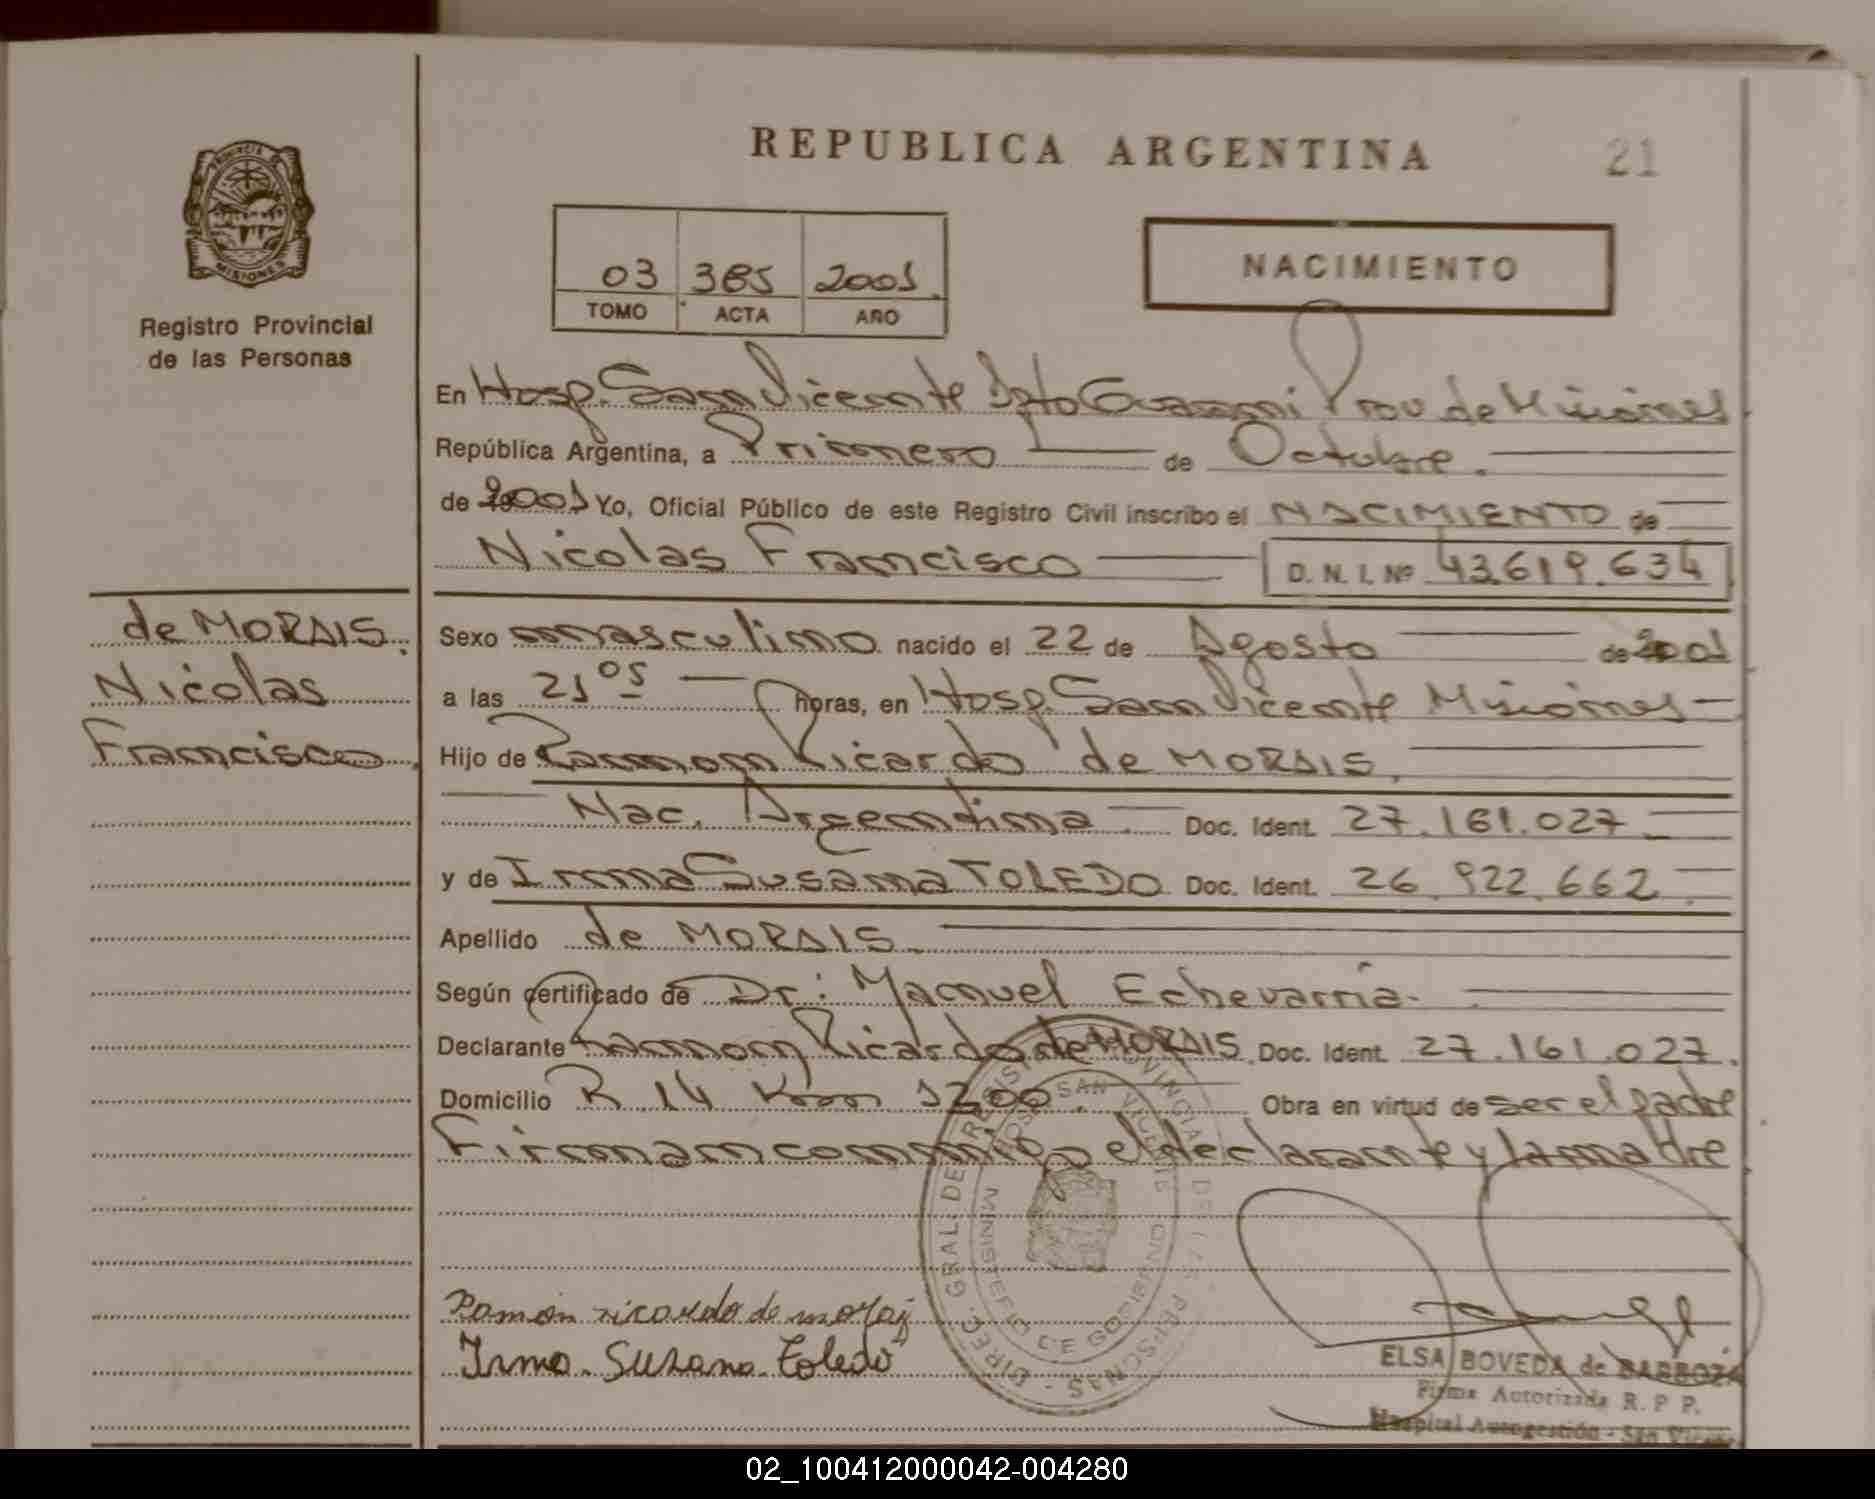 REPUBLICA ARGENTINA
21
PROVINCIA DE
MISIONES
Registro Provincial
de las Personas
03 385 2001
TOMO ACTA AÑO
NACIMIENTO
En Hosp. San Vicente Dpto Guarani Prov de Misiones
República Argentina, a Primero de Octubre.
de 2001 Yo, Oficial Público de este Registro Civil inscribo el NACIMIENTO de
Nicolas Francisco D. N. I. Nº 43.619.634
de MORAIS.
Nicolas
Francisco
Sexo masculino nacido el 22 de Agosto de 2001
a las 21 05 horas, en Hosp. San Vicente Misiones
Hijo de Ramon Ricardo de MORAIS.
Nac. Argentina Doc. Ident. 27.161.027
y de Irma Susana TOLEDO Doc. Ident. 26.922.662
Apellido de MORAIS.
Según certificado de Dr: Manuel Echevarría
Declarante Ramon Ricardo de MORAIS. Doc. Ident. 27.161.027.
Domicilio R 14 Km 1200. Obra en virtud de ser el padre
Firman conmigo el declarante y la madre
DIREC. GRAL. DEL REGISTRO PROVINCIAL DE LAS PERSONAS
HOSP. SAN VICENTE
MINISTERIO DE GOBIERNO
Ramón ricardo de morais
Irma. Susana. Toledo
ELSA BOVEDA de BARBOZA
Firma Autorizada R. P P.
Hospital Autogestión - San Vicente
02_100412000042-004280